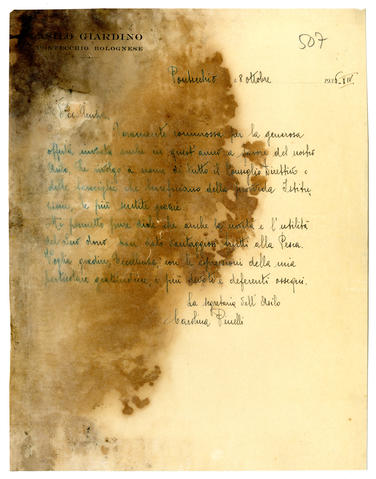 ASILO GIARDINO
PONTECCHIO BOLOGNESE
507
Pontecchio 8 ottobre
Eccellenza,
Veramente commossa per la generosa
offerta inviata anche in quest'anno a favore del nostro
Asilo, Le rivolgo a nome di tutto il Consiglio Direttivo e
delle famiglie che beneficiano della Istitu-
zione, le più sentite grazie.
Mi permetto pure dirle che anche la novità e l'utilità
del suo dono, alla Pesca.
Voglia gradire, Eccellenza, con le espressioni della mia
particolare gratitudine, i più devoti e deferenti ossequi.
La segretaria dell'Asilo
Carolina